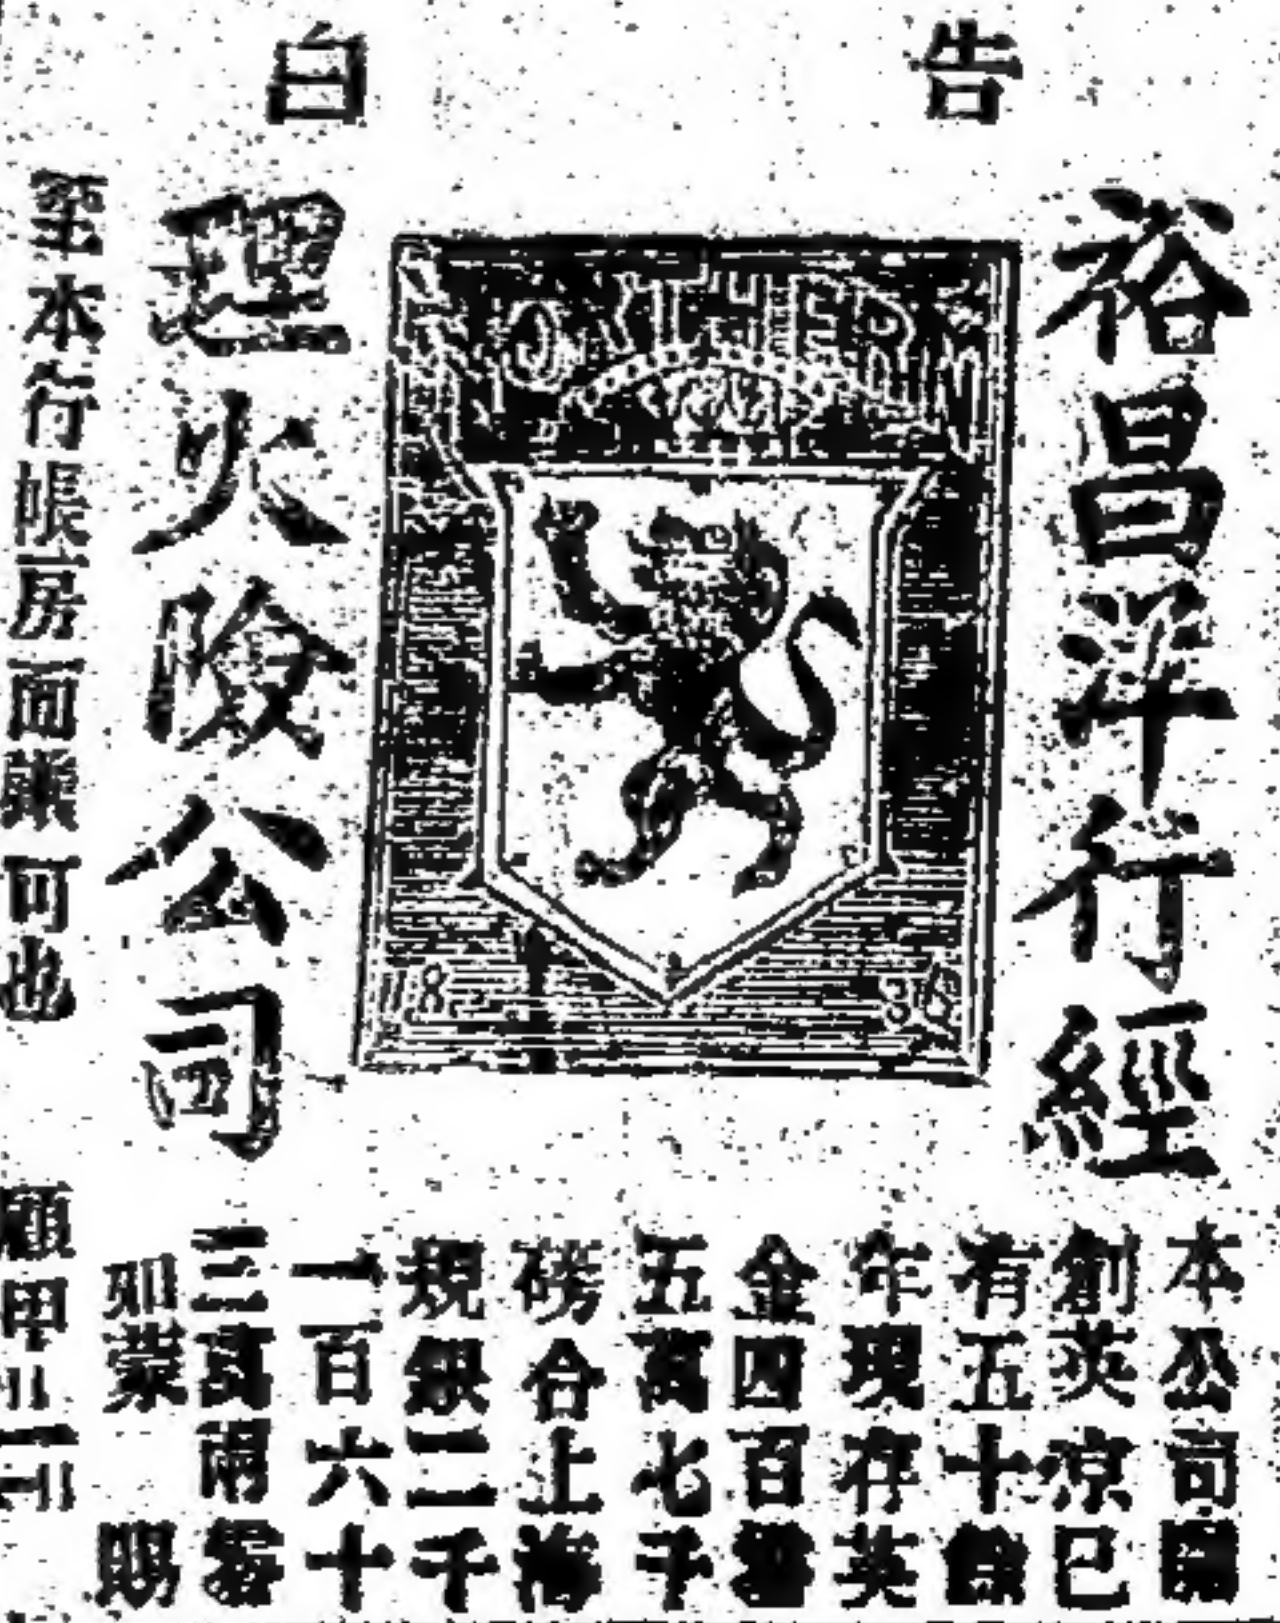 告白
裕昌洋行經
理火險公司
NORTHERN
1836
本公司開
創英京已
有五十餘
年現存英
金四百零
五萬七千
磅合上海
規銀二千
一百六十
三萬兩零
如蒙 賜
顧
至本行帳房面議可也